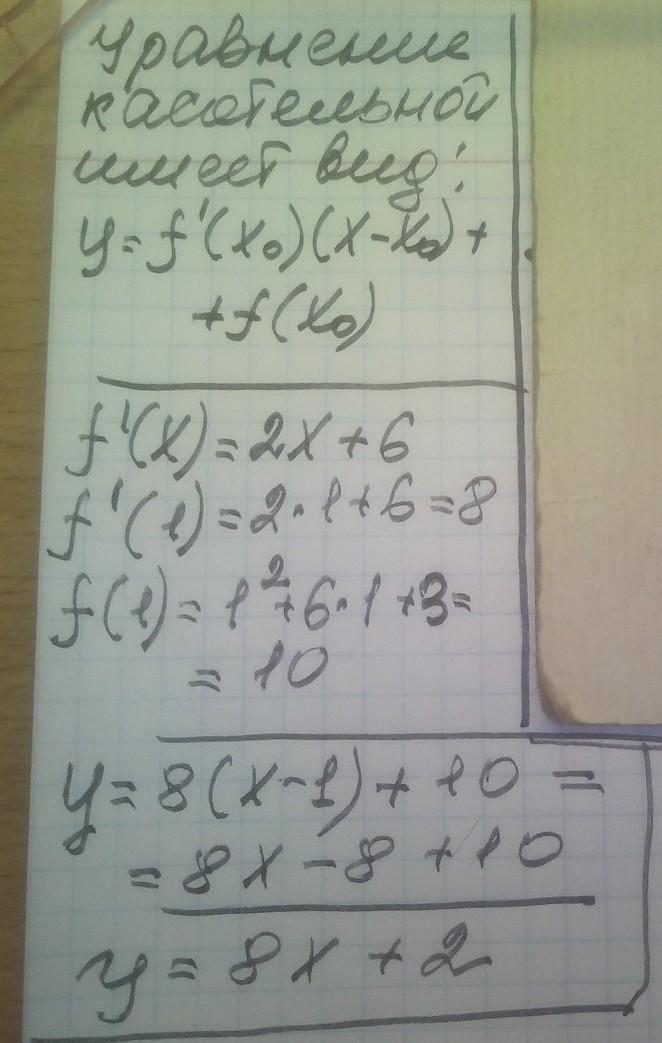 Уравнение
касательной
имеет вид:
y=f'(x₀)(x-x₀)+
+f(x₀)
f'(x)=2x+6
f'(1)=2·1+6=8
f(1)=1²+6·1+3=
=10
y=8(x-1)+10=
=8x-8+10
y=8x+2